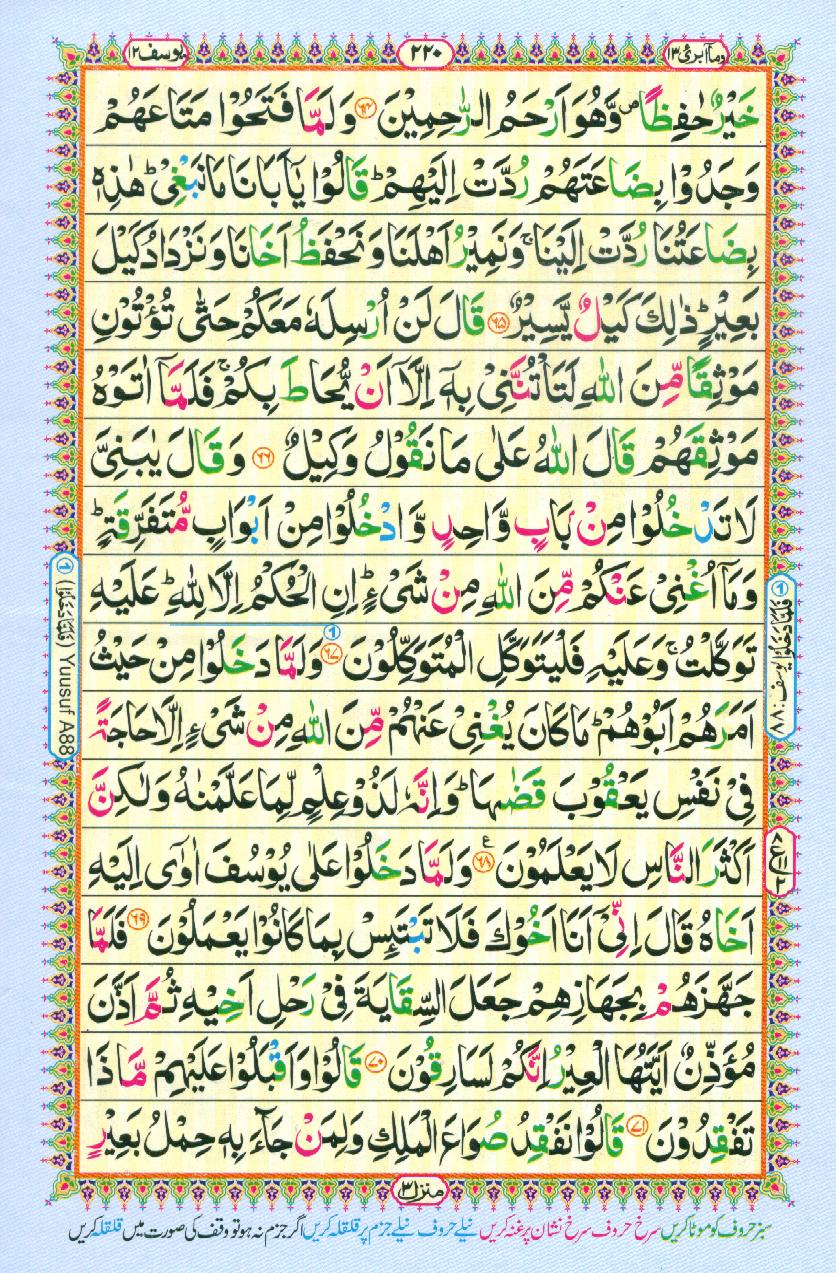 وما ابرئ ١٣
٢٢٠
يوسف ١٢
خَيْرٌ حٰفِظًا ۪ وَّهُوَ اَرْحَمُ الرّٰحِمِيْنَ ﴿۶۴﴾ وَلَمَّا فَتَحُوْا مَتَاعَهُمْ
وَجَدُوْا بِضَاعَتَهُمْ رُدَّتْ اِلَيْهِمْ ؕ قَالُوْا يٰۤاَبَانَا مَا نَبْغِيْ ؕ هٰذِهٖ
بِضَاعَتُنَا رُدَّتْ اِلَيْنَا ۚ وَنَمِيْرُ اَهْلَنَا وَنَحْفَظُ اَخَانَا وَنَزْدَادُ كَيْلَ
بَعِيْرٍ ؕ ذٰلِكَ كَيْلٌ يَّسِيْرٌ ﴿۶۵﴾ قَالَ لَنْ اُرْسِلَهٗ مَعَكُمْ حَتّٰى تُؤْتُوْنِ
مَوْثِقًا مِّنَ اللّٰهِ لَتَاْتُنَّنِيْ بِهٖۤ اِلَّاۤ اَنْ يُّحَاطَ بِكُمْ ۚ فَلَمَّاۤ اٰتَوْهُ
مَوْثِقَهُمْ قَالَ اللّٰهُ عَلٰى مَا نَقُوْلُ وَكِيْلٌ ﴿۶۶﴾ وَقَالَ يٰبَنِيَّ
لَا تَدْخُلُوْا مِنْۢ بَابٍ وَّاحِدٍ وَّادْخُلُوْا مِنْ اَبْوَابٍ مُّتَفَرِّقَةٍ ؕ
وَمَاۤ اُغْنِيْ عَنْكُمْ مِّنَ اللّٰهِ مِنْ شَيْءٍ ؕ اِنِ الْحُكْمُ اِلَّا لِلّٰهِ ؕ عَلَيْهِ
تَوَكَّلْتُ ۚ وَعَلَيْهِ فَلْيَتَوَكَّلِ الْمُتَوَكِّلُوْنَ ﴿۶۷﴾ وَلَمَّا دَخَلُوْا مِنْ حَيْثُ
اَمَرَهُمْ اَبُوْهُمْ ؕ مَا كَانَ يُغْنِيْ عَنْهُمْ مِّنَ اللّٰهِ مِنْ شَيْءٍ اِلَّا حَاجَةً
فِيْ نَفْسِ يَعْقُوْبَ قَضٰىهَا ؕ وَاِنَّهٗ لَذُوْ عِلْمٍ لِّمَا عَلَّمْنٰهُ وَلٰكِنَّ
اَكْثَرَ النَّاسِ لَا يَعْلَمُوْنَ ﴿۶۸﴾ وَلَمَّا دَخَلُوْا عَلٰى يُوْسُفَ اٰوٰۤى اِلَيْهِ
اَخَاهُ قَالَ اِنِّيْۤ اَنَا اَخُوْكَ فَلَا تَبْتَئِسْ بِمَا كَانُوْا يَعْمَلُوْنَ ﴿۶۹﴾ فَلَمَّا
جَهَّزَهُمْ بِجَهَازِهِمْ جَعَلَ السِّقَايَةَ فِيْ رَحْلِ اَخِيْهِ ثُمَّ اَذَّنَ
مُؤَذِّنٌ اَيَّتُهَا الْعِيْرُ اِنَّكُمْ لَسَارِقُوْنَ ﴿۷۰﴾ قَالُوْا وَاَقْبَلُوْا عَلَيْهِمْ مَّاذَا
تَفْقِدُوْنَ ﴿۷۱﴾ قَالُوْا نَفْقِدُ صُوَاعَ الْمَلِكِ وَلِمَنْ جَآءَ بِهٖ حِمْلُ بَعِيْرٍ
① فَلَمَّا دَخَلُوْا يوسف: ٨٨
① (فَلَمَّا دَخَلُوْا) Yousuf A88
منزل ٣
سبز حروف کو موٹا کریں سرخ حروف سرخ نشان پر غنہ کریں نیلے حروف نیلے جزم پر قلقلہ کریں اگر جزم نہ ہو تو وقف کی صورت میں قلقلہ کریں